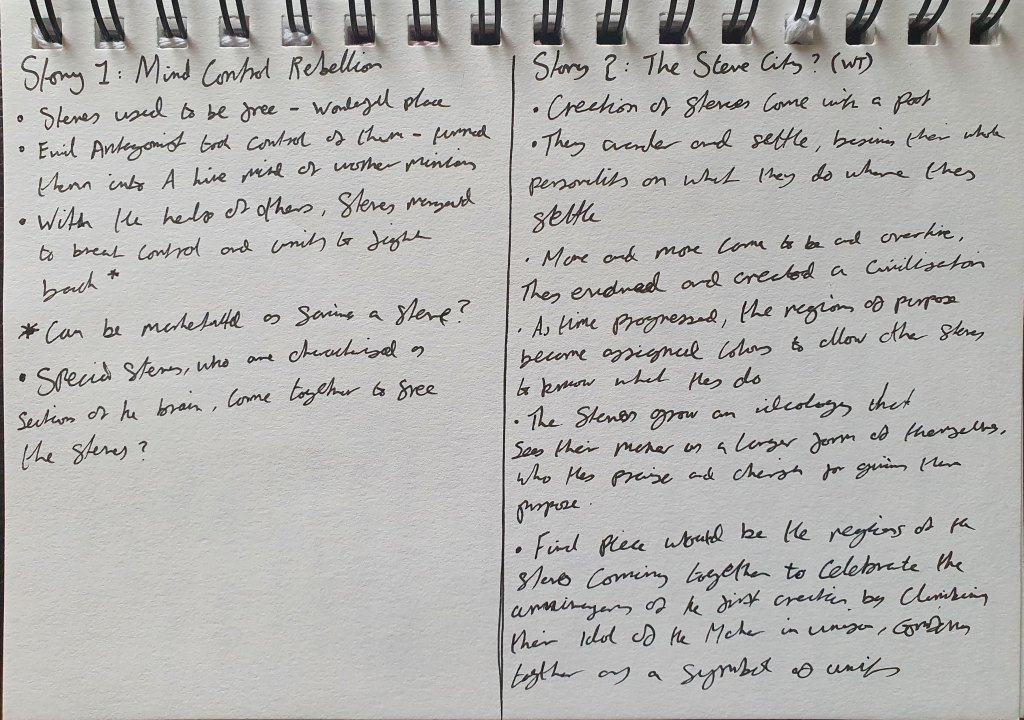 Story 1: Mind Control Rebellion
• Steves used to be free - wonderful place
• Evil Antagonist took control of them - turned
them into A hive mind of worker minions
• With the help of others, Steves managed
to break control and unify to fight
back *
* Can be marketed as saving a Steve?
• Special Steves, who are characterised as
sections of the brain, come together to free
the Steves?
Story 2: The Steve City? (WT)
• Creation of Steves come with a
• They wander and settle, basing their whole
personality on what they do where they
settle
• More and more come to be and overtime,
They and created a Civilisation
• As time progressed, the regions of purpose
became assigned colours to allow other Steves
to know what they do
• The Steves grow an ideology that
sees their maker as a larger form of themselves,
who they praise and cherish for giving them
purpose.
• Final piece would be the regions of the
Steves coming together to celebrate the
anniversary of the first creation by Climbing
their Idol of the Maker in unison,
together as a symbol of unity